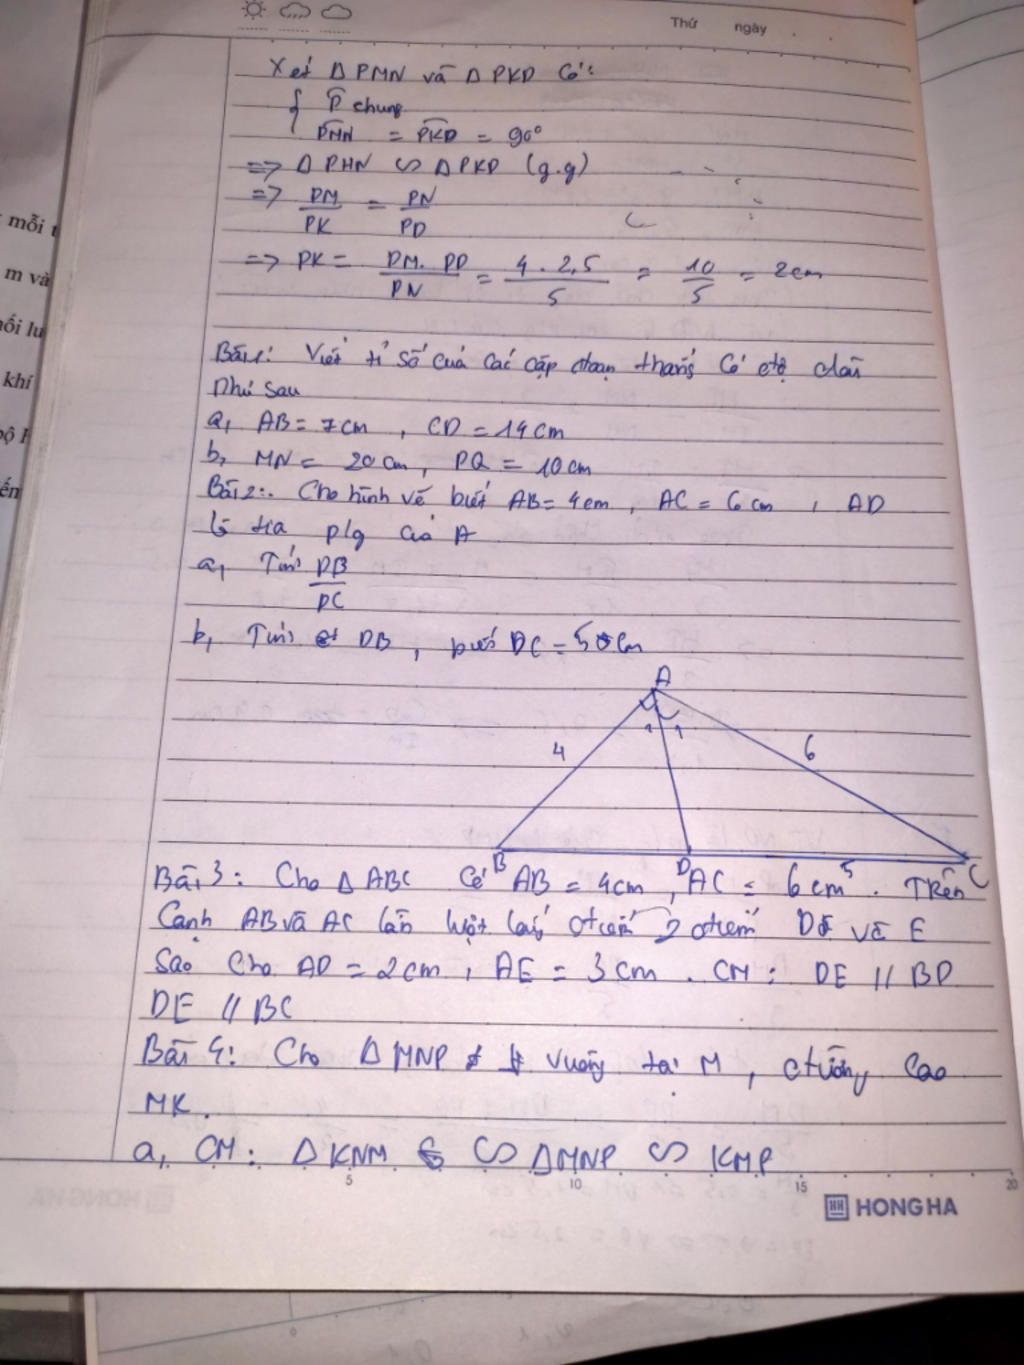 Thứ ngày
Xét Δ PMN và Δ PKD có:
{ P̂ chung
PMN = PKD = 90°
=> Δ PMN ∽ Δ PKD (g.g)
=> PM/PK = PN/PD
=> PK = PM. PD/PN = 4 . 2,5/5 = 10/5 = 2cm
Bài 1: Viết tỉ số của các cặp đoạn thẳng có độ dài
như sau
a, AB = 7cm , CD = 14cm
b, MN = 20cm, PQ = 10cm
Bài 2: Cho hình vẽ biết AB = 4cm , AC = 6cm , AD
là tia p/g của A
a, Tính DB/DC
b, Tính DB , biết DC = 5cm
A
1 1
4 6
B D C
5
Bài 3: Cho Δ ABC có AB = 4cm , AC = 6cm . Trên
cạnh AB và AC lần lượt lấy 2 điểm D và E
sao cho AD = 2cm , AE = 3cm . CM : DE // BD
DE // BC
Bài 4: Cho Δ MNP vuông tại M , đường cao
MK.
a, CM : Δ KNM ∽ Δ MNP ∽ KMP
5 10 15 20
HONG HA
mỗi
m và
khí